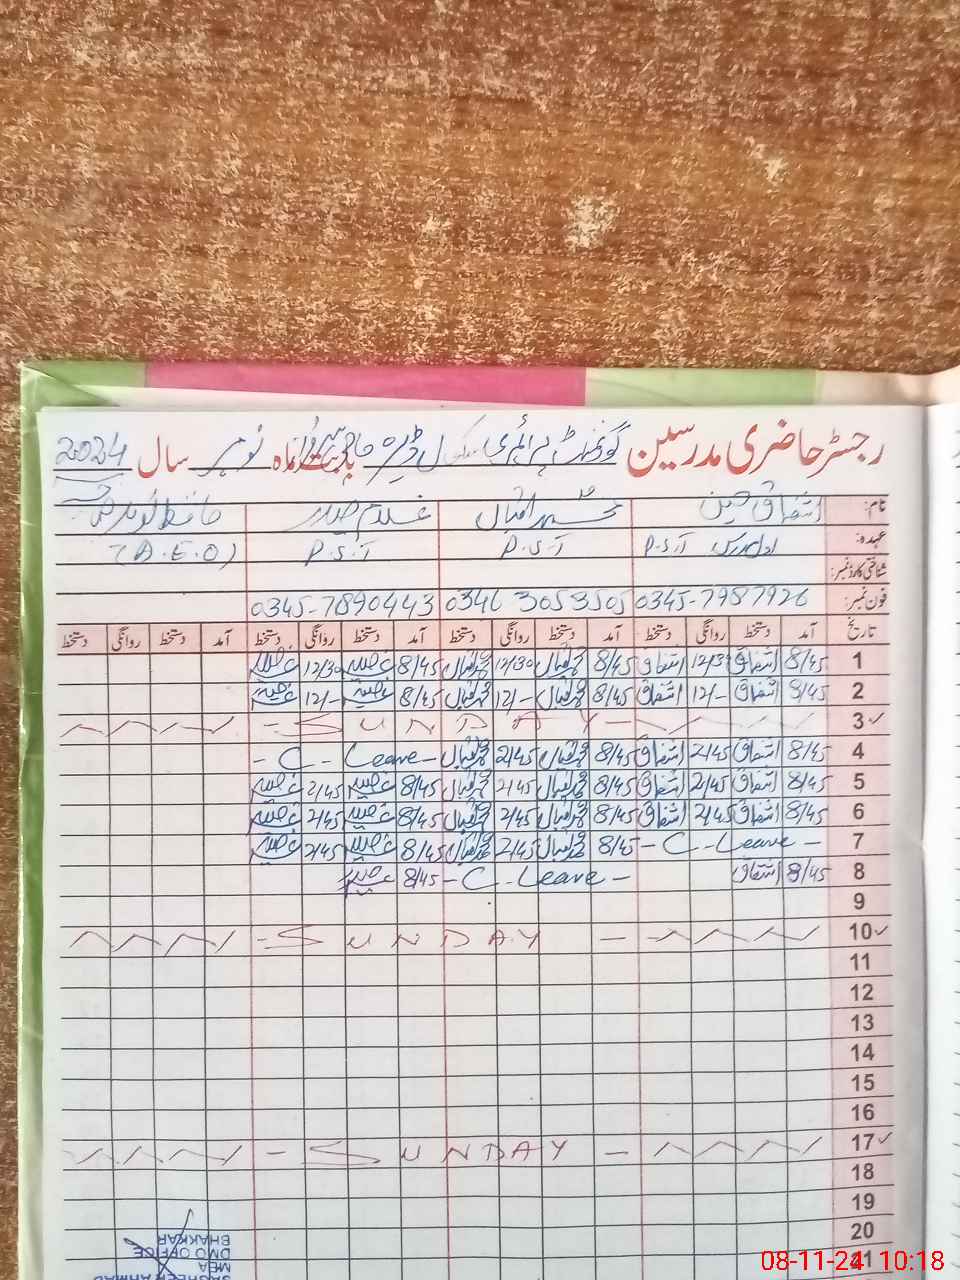 رجسٹر حاضری مدرسین گورنمنٹ پرائمری سکول ڈیرہ بابت ماہ نومبر سال 2024
نام: اشفاق حسین محمد اقبال غلام حیدر
عہدہ: اول مدرس P.S.T P.S.T P.S.T (A.E.O)
شناختی کارڈ نمبر:
فون نمبر: 0345-7987926 0346 3053505 0345-7890443
تاریخ آمد دستخط روانگی دستخط آمد دستخط روانگی دستخط آمد دستخط روانگی دستخط آمد دستخط روانگی دستخط
1 8/45 اشفاق 12/30 اشفاق 8/45 محمد اقبال 12/30 محمد اقبال 8/45 12/30
2 8/45 اشفاق 12/- اشفاق 8/45 محمد اقبال 12/- محمد اقبال 8/45 12/-
3 ✓ - SUNDAY -
4 8/45 اشفاق 2/45 اشفاق 8/45 محمد اقبال 2/45 محمد اقبال - C - Leave -
5 8/45 اشفاق 2/45 اشفاق 8/45 محمد اقبال 2/45 محمد اقبال 8/45 2/45
6 8/45 اشفاق 2/45 اشفاق 8/45 محمد اقبال 2/45 محمد اقبال 8/45 2/45
7 - C - Leave - 8/45 محمد اقبال 2/45 محمد اقبال 8/45 2/45
8 8/45 اشفاق - C - Leave - 8/45
9
10 ✓ - SUNDAY -
11
12
13
14
15
16
17 ✓ - SUNDAY -
18
19
20
21
BHAKKAR
DMO OFFICE
MEA
SAGHEER AHMAD
08-11-24 10:18